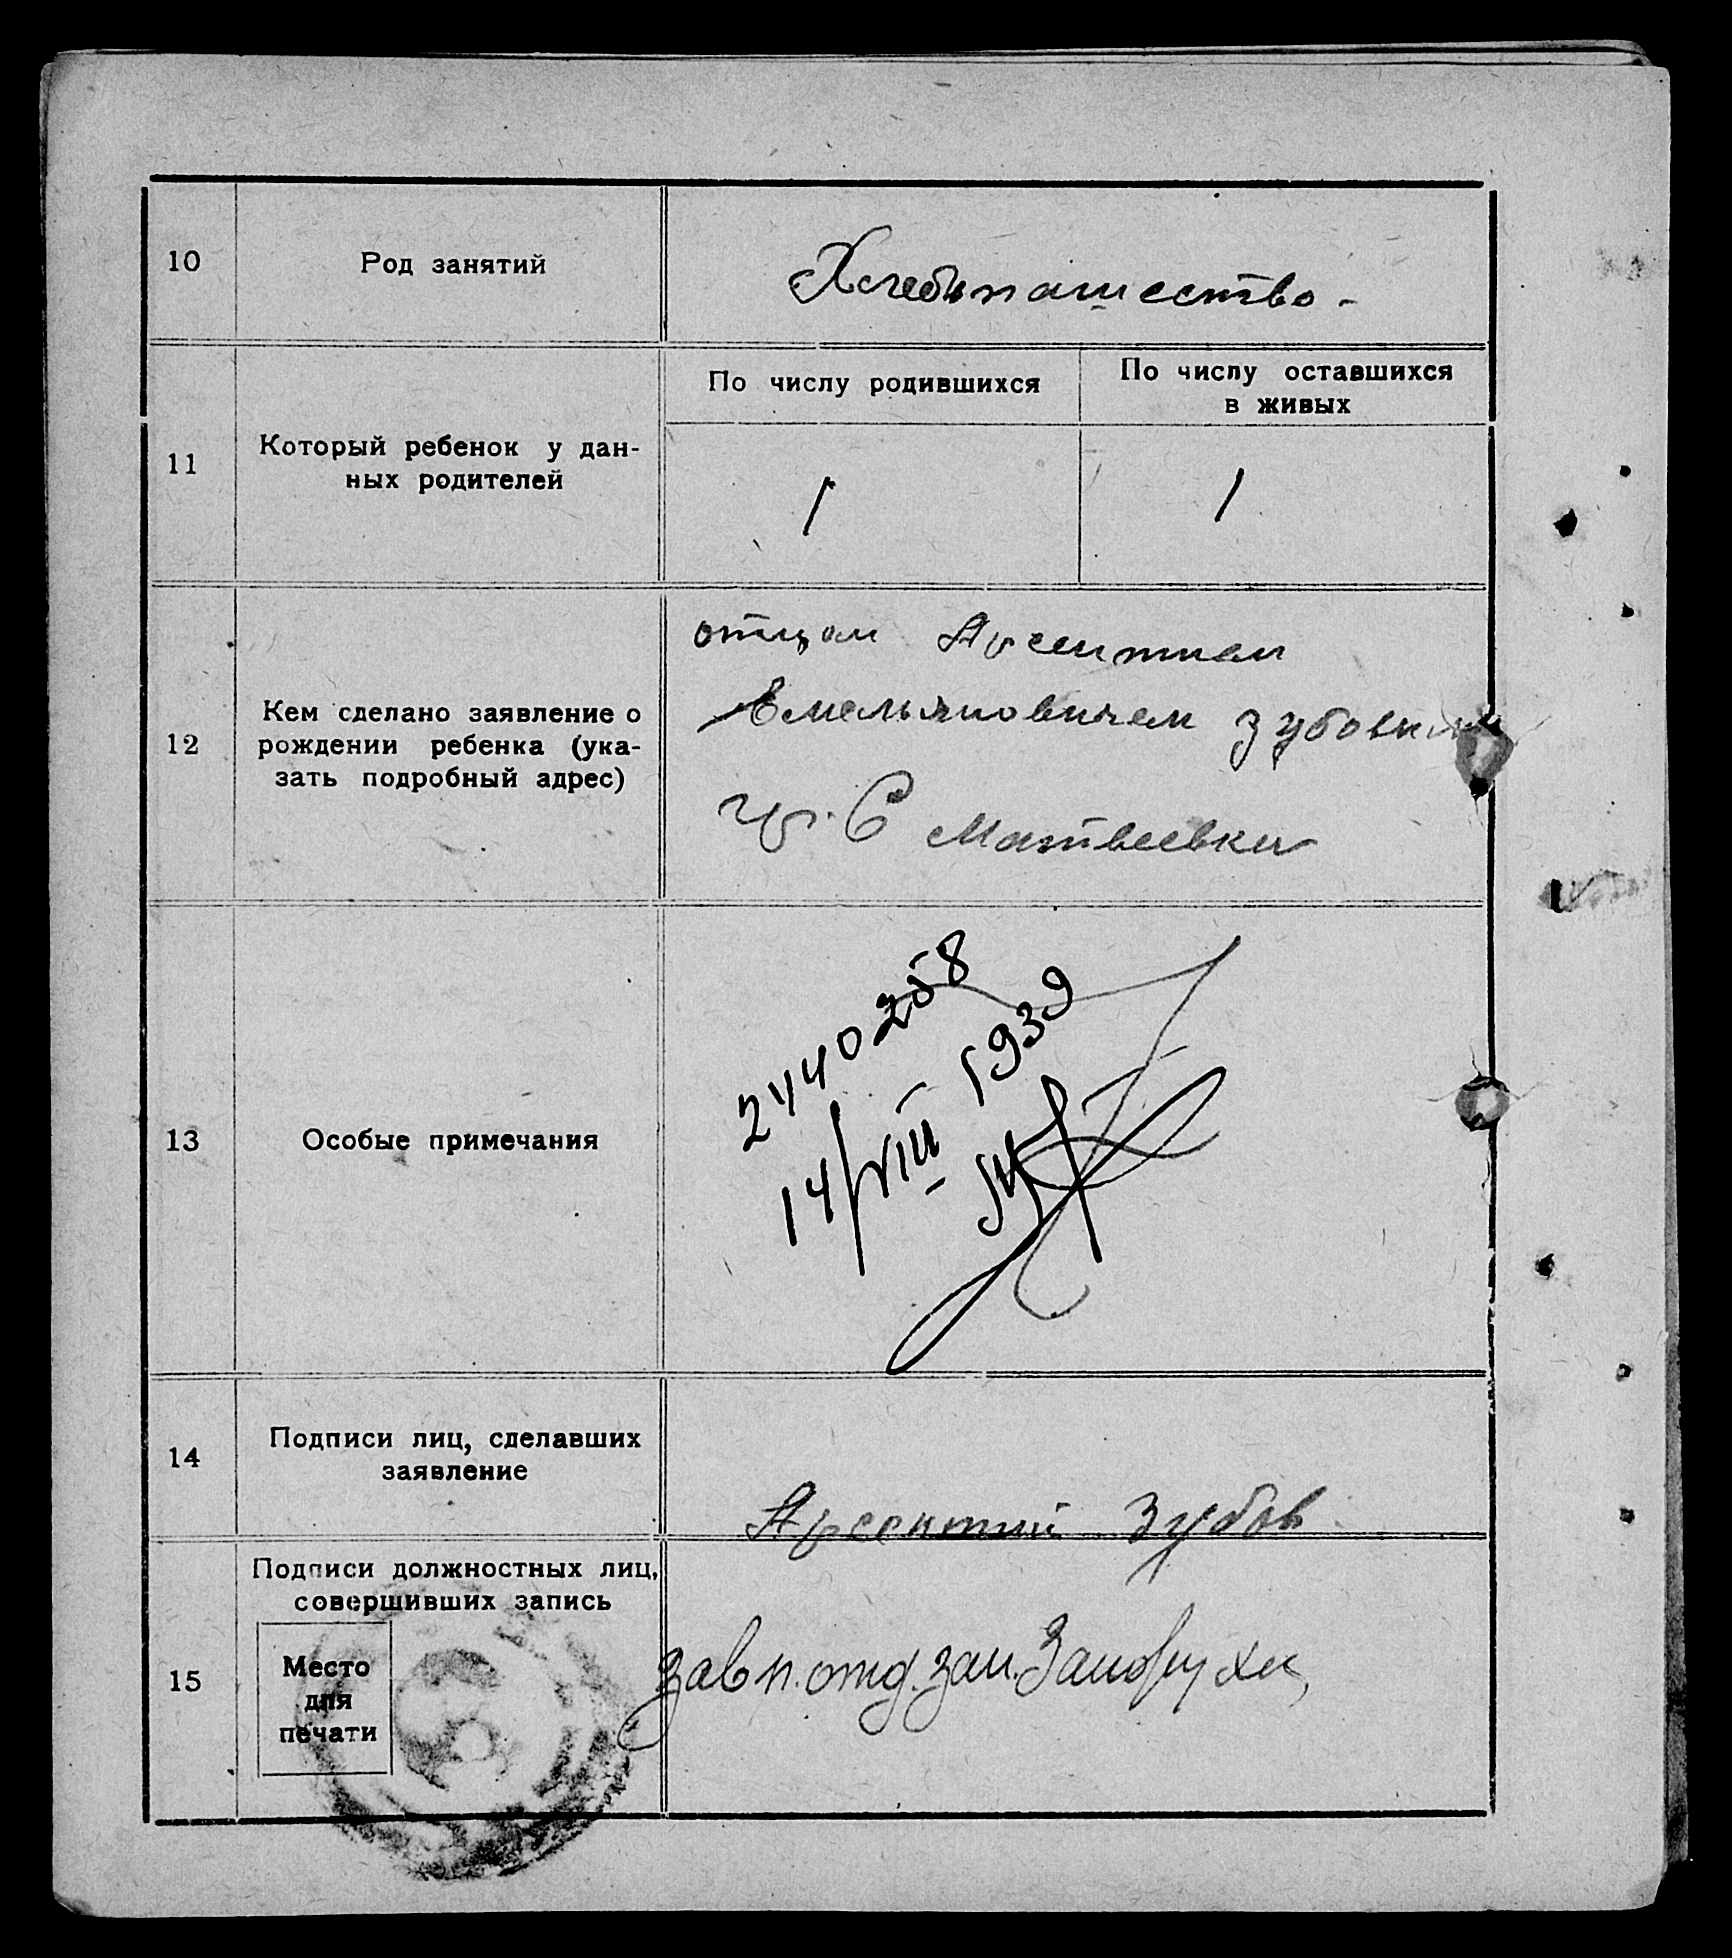 10
Род занятий
Хлебопашество -
11
Который ребенок у дан-
ных родителей
По числу родившихся
По числу оставшихся
в живых
1
1
12
Кем сделано заявление о
рождении ребенка (ука-
зать подробный адрес)
отцом Арсентием
Емельяновичем Зубовым
гр. С Матвеевки
13
Особые примечания
2440258
14/VIII 1939
14
Подписи лиц, сделавших
заявление
Арсентий Зубов
15
Подписи должностных лиц,
совершивших запись
Место
для
печати
зав п. отд. зап.